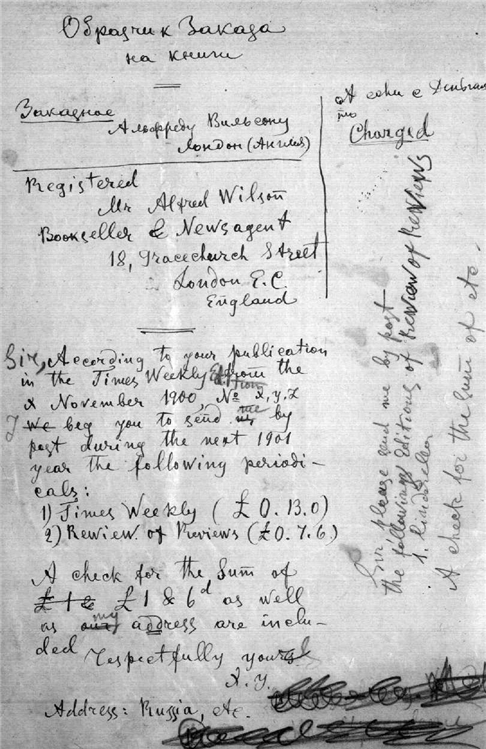 Образчик Заказа
на книги
Заказное
Альфреду Вильсону
Лондон (Англия)
А если с
то
Charged
Registered
Mr Alfred Wilson
Bookseller & Newsagent
18, Gracechurch Street
London E.C
England
Sir, According to your publication
in the Times Weekly Edition from the
x November 1900, № x, y, z
I we beg you to send me us by
post during the next 1901
year the following periodi-
cals:
1) Times Weekly (£ 0.13.0)
2) Rewiew of Reviews (£0.7.6)
A check for the Sum of
£ 1 & £ 1 & 6d as well
as our my address are inclu-
ded
Respectfully yours
A. Y.
Address: Russia, etc.
Sir, please send me by post
the followings Editions of Rewiew of Rewiews
1.
A check for the Sum of etc.